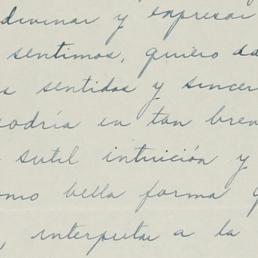 divinar y expresar
sentimos, quiero da
s sentidos y sincer
odría en tan brev
sutil intuición y
omo bella forma
, interpretar a la